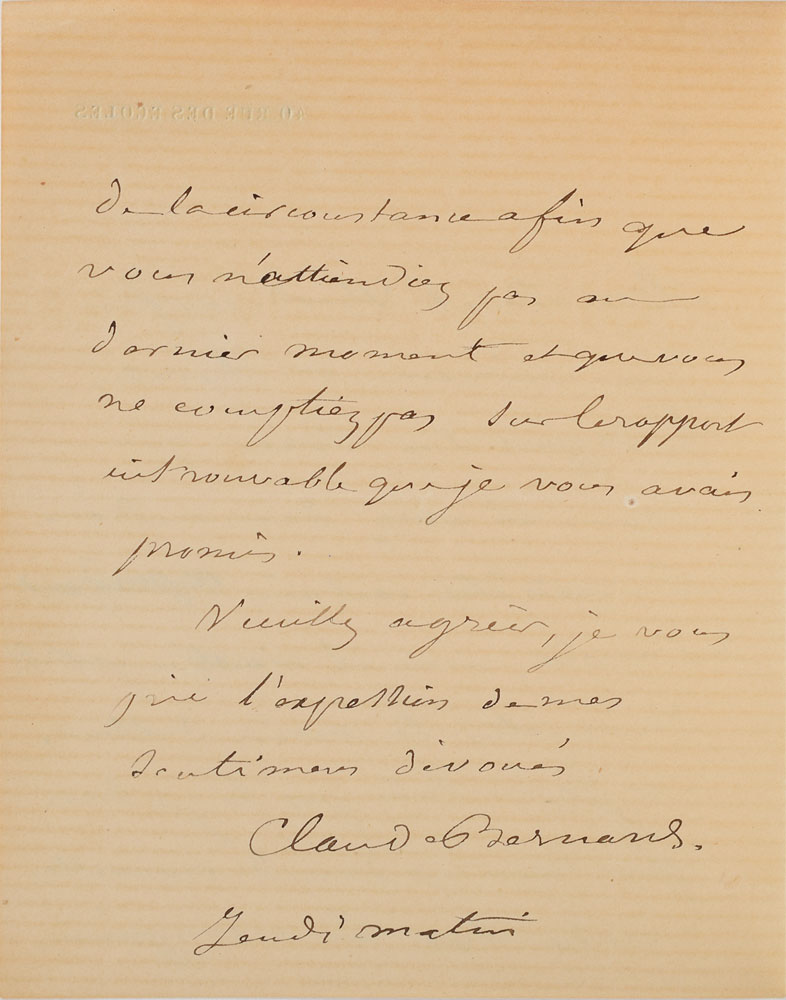 40 RUE DES ECOLES
de la circonstance afin que
vous n'attendiez pas au
dernier moment et que vous
ne comptiez pas sur le rapport
introuvable que je vous avais
promis.
Veuillez agréer, je vous
prie l'expression de mes
sentimens dévoués
Claude Bernard.
Jeudi matin